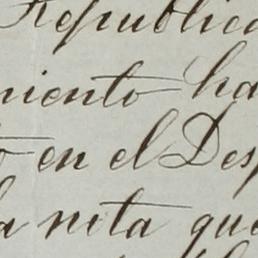 Republica
miento ha
en el Des
la nota que